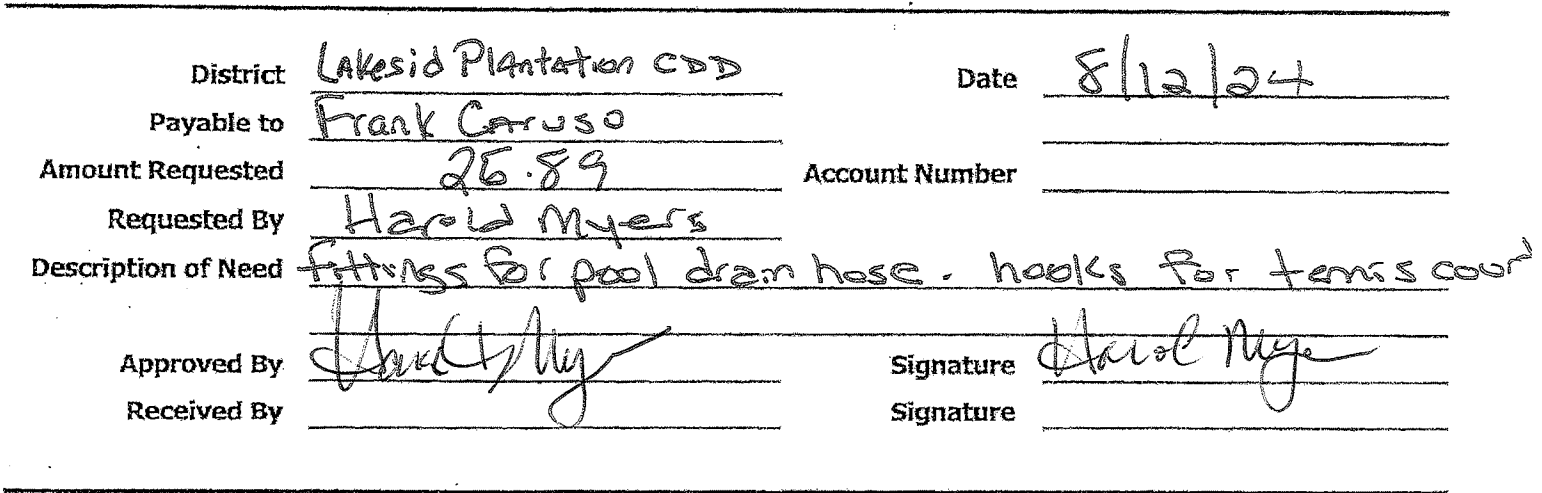 District Lakesid Plantation CDD Date 8/12/24
Payable to Frank Caruso
Amount Requested 26.89 Account Number
Requested By Harold Myers
Description of Need fittings for pool drain hose. hooks for tennis cour
Approved By Signature
Received By Signature